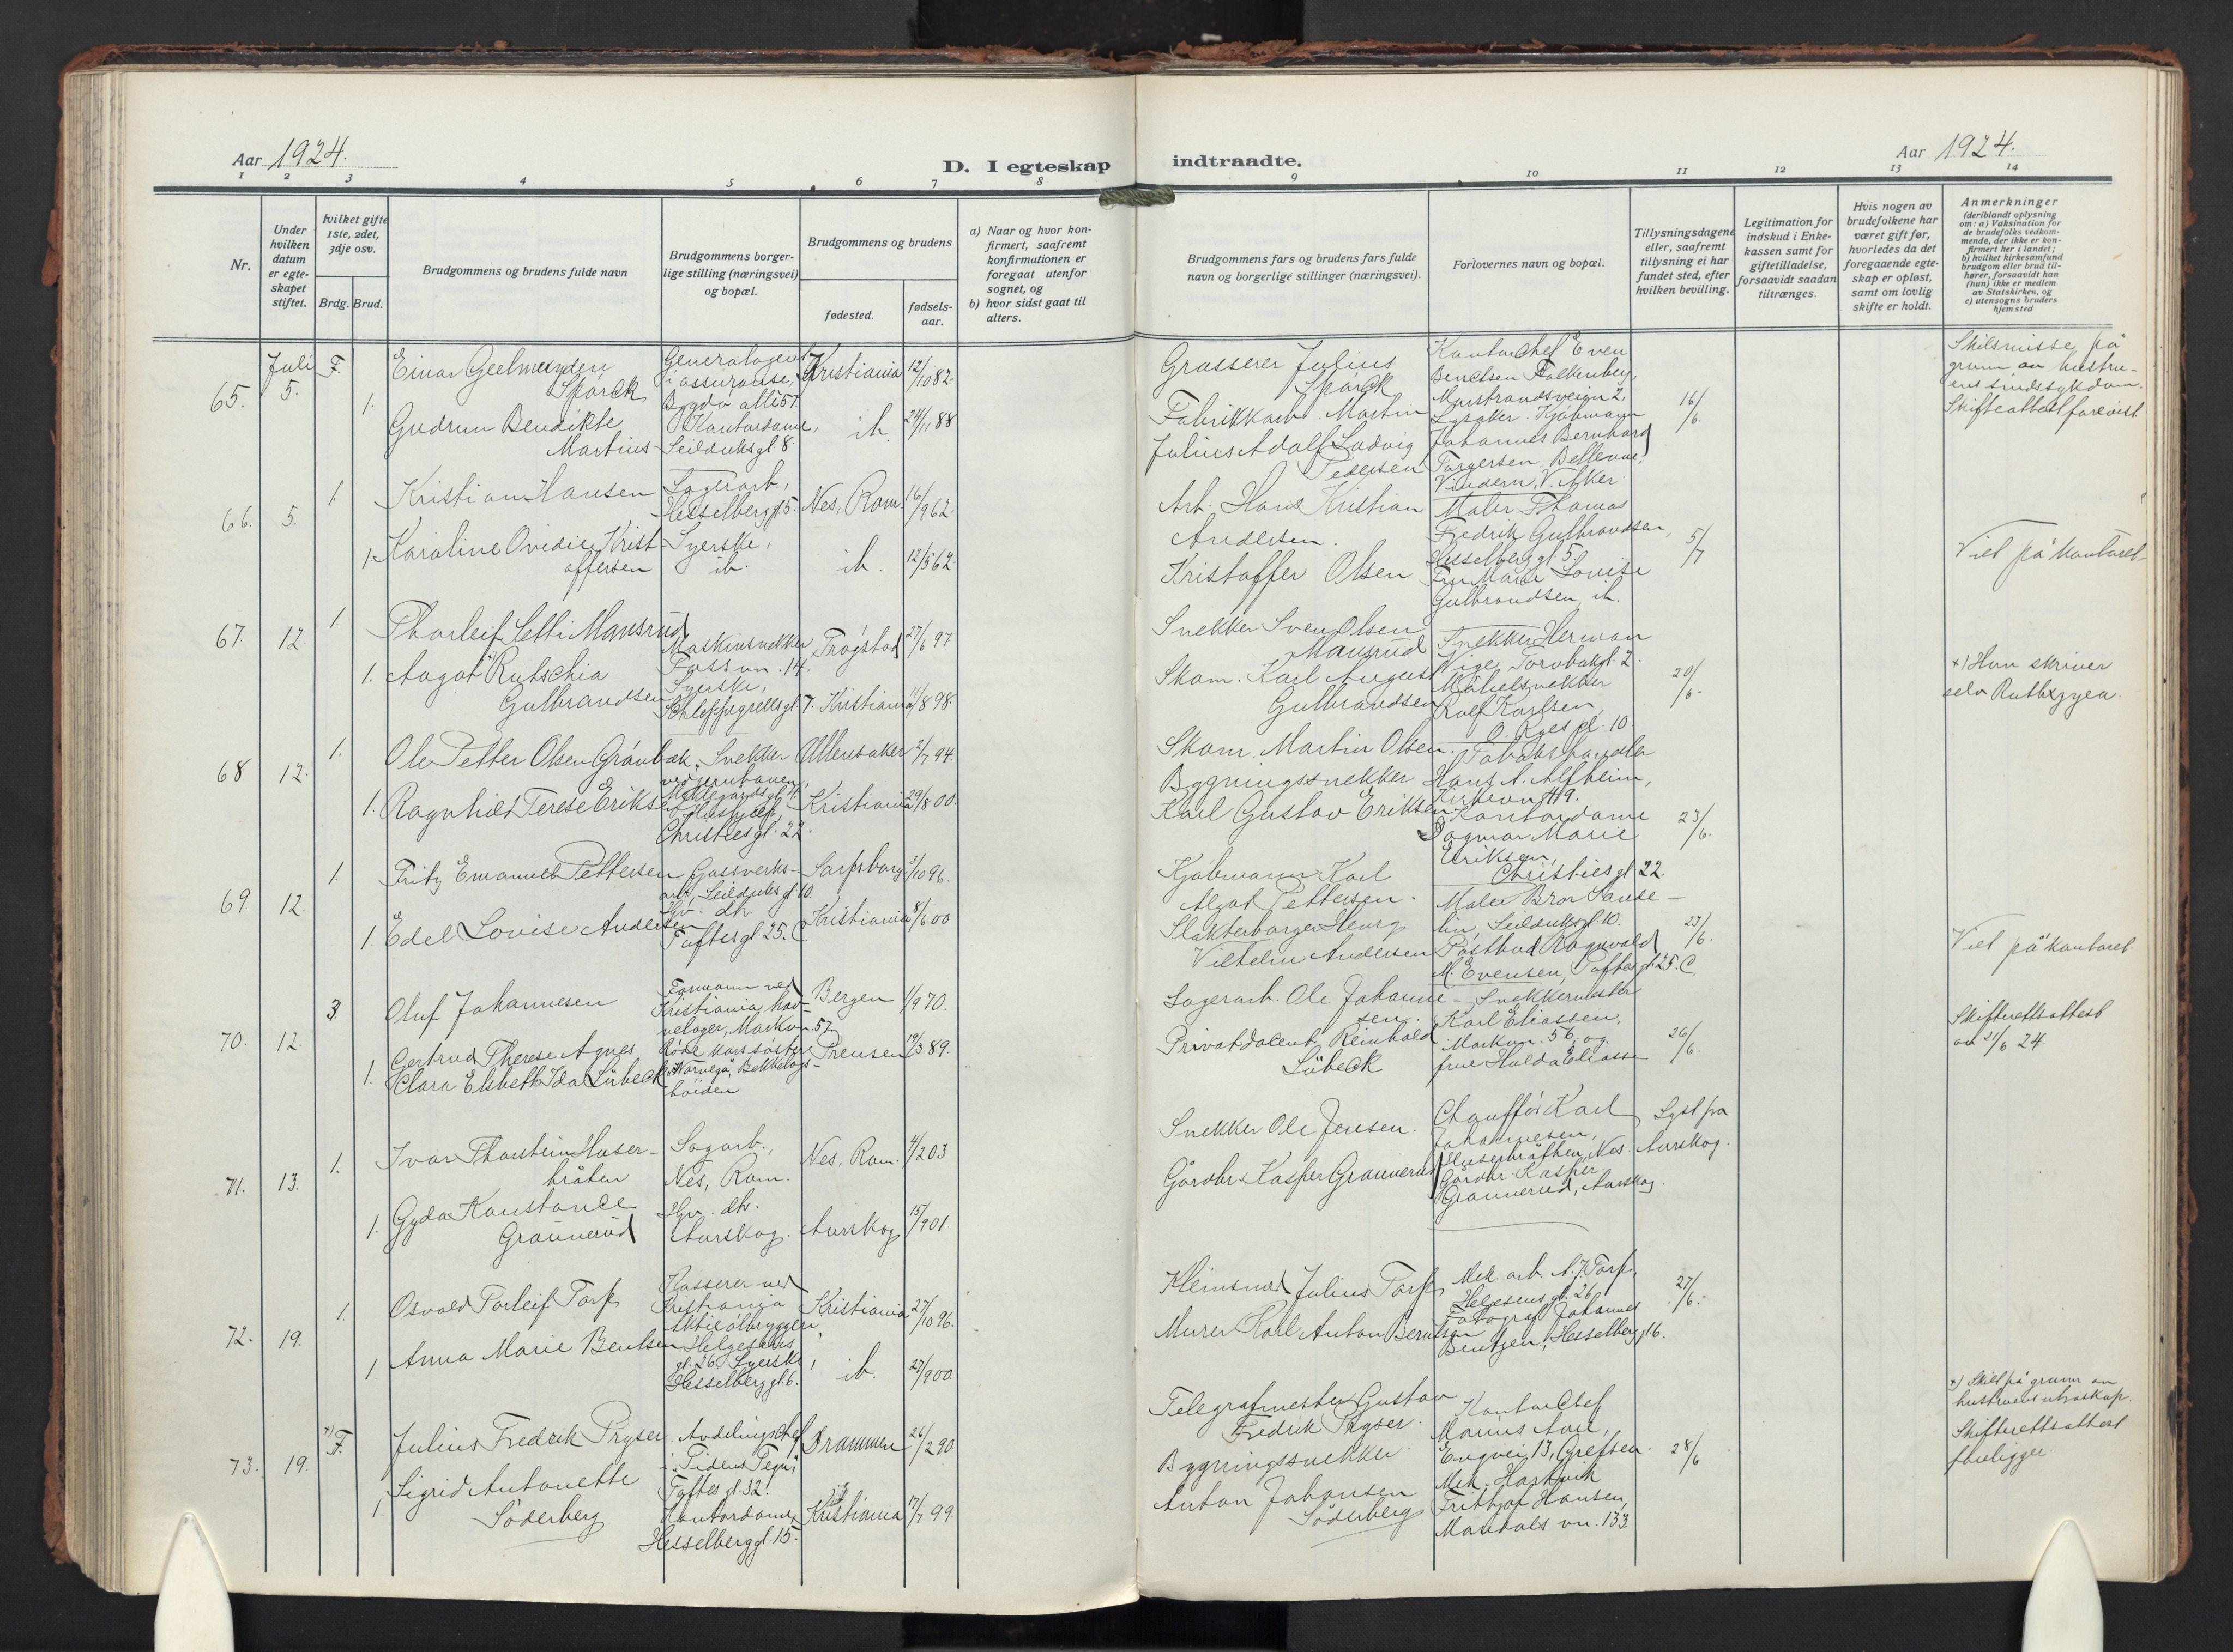 Aar 1924.
D. I egteskap indtraadte.
Aar 1924.
1 2 3 4 5 6 7 8 9 10 11 12 13 14
Nr.
Under hvilken datum er egteskapet stiftet.
Hvilket gifte 1ste, 2det, 3dje osv.
Brdg. Brud.
Brudgommens og brudens fulde navn
Brudgommens borgerlige stilling (næringsvei) og bopæl.
Brudgommens og brudens
fødested.
fødselsaar.
a) Naar og hvor konfirmert, saafremt konfirmationen er foregaat utenfor sognet, og
b) hvor sidst gaat til alters.
Brudgommens fars og brudens fars fulde navn og borgerlige stillinger (næringsvei).
Forlovernes navn og bopæl.
Tillysningsdagene eller, saafremt tillysning ei har fundet sted, efter hvilken bevilling.
Legitimation for indskud i Enkekassen samt for giftetilladelse, forsaavidt saadan tiltrænges.
Hvis nogen av brudefolkene har været gift før, hvorledes da det foregaaende egteskap er opløst, samt om lovlig skifte er holdt.
Anmerkninger
(deriblandt oplysning om: a) Vaksination for de brudefolks vedkommende, der ikke er konfirmert her i landet; b) hvilket kirkesamfund brudgom eller brud tilhører, forsaavidt han (hun) ikke er medlem av Statskirken, og c) utensogns bruders hjemsted
65. Juli 5. F.
Einar Geelmuyden Spørck
Generalagent i assuranse, Bygdø allé 57.
Kristiania 12/10 82
1. Gudrun Bendikte Martins
Kontordame, Seilduksgt. 8.
ib. 24/11 88
Grosserer Julius Spørck
Fabrikkarb. Martin Julius Adolf Ludvig Pedersen
Kontorchef Even Bentsen Falkenberg, Marstrandsveien 2, Lysaker. Kjøbmann Johannes Bernhard Torgersen, Bellevue, Vindern, V. Aker.
16/6.
Skilsmisse på grunn av hustruens sindssykdom. Skifteattest forevist.
66. 5. 1
Kristian Hansen
Lagerarb., Hesselberggt. 5.
Nes, Rom. 16/9 62
1. Karoline Ovidie Kristoffersen
Syerske, ib.
ib. 12/5 62
Arb. Hans Kristian Andersen.
Kristoffer Olsen
Maler Thomas Fredrik Gulbrandsen, Hesselberggt. 5, Fru Marie Lovise Gulbrandsen, ib.
5/7
Viet på kontoret
67. 12. 1.
Thorleif Setti Mansrud
Maskinsnekker Fossvn. 14.
Trøgstad 27/6 97
1. Aagot Rutschia Gulbrandsen
Syerske, Schleppegrellsgt. 7.
Kristiania 11/8 98.
Snekker Sven Olsen Mansrud
Skom. Karl August Gulbrandsen
Snekker Herman Vige, Tornbakgt. 2. Møbelsnekker Rolf Karlsen, O. Ryes pl. 10
20/6.
x) Hun skriver selv Rutbzgyea.
68 12. 1.
Ole Petter Olsen Grønbæk,
Snekker ved jernbanen,
Ullensaker 2/7 94.
1. Ragnhild Terese Eriksen
Hushjelp, Christiesgt. 22.
Kristiania 29/8 00.
Skom. Martin Olsen.
Bygningssnekker Karl Gustav Eriksen
Tobakshandler Hans A. Alfheim, Kirkevn. 49. Kontordame Dagmar Marie Eriksen, Christiesgt 22.
23/6.
69. 12. 1.
Fritz Emanuel Pettersen
Gassverksarb., Seilduksgt 10.
Sarpsborg 3/10 96.
1. Edel Lovise Andersen
Hv. dtr. Toftesgt 25. C
Kristiania 8/6 00
Kjøbmann Karl Algot Pettersen.
Slakterborger Henry Vilhelm Andersen
Maler Bror Sandelin, Seilduksgt. 10. Postbud Ragnvald M. Evensen, Toftesgt. 25. C.
23/6.
Viet på kontoret
70. 12. 3
Oluf Johannesen
Formann ved Kristiania Havnelager, Markvn. 57.
Bergen 1/9 70.
1. Gertrud Therese Agnes Clara Elsbeth Ida Lübeck
Røde kors søster "Norvegia", Bekkelagshøiden
Preusen 19/3 89.
Lagerarb. Ole Johannesen.
Privatdocent Reinhold Lübeck
Snekkermester Karl Eliassen, Markvn. 56, og frue Hulda Eliassen
26/6.
Skifterettsattest av 21/6 24.
71. 13. 1.
Ivar Thorstein Huserbråten
Sagarb., Nes, Rom.
Nes, Rom. 4/2 03
1. Gyda Konstance Grannerud
Hv. dtr. Aurskog.
Aurskog 15/9 01.
Snekker Ole Jensen.
Gårdbr. Kasper Grannerud
Chauffør Karl Johannesen, Huserbråthen, Nes. Gårdbr. Kasper Grannerud, Aurskog.
Lyst fra Aurskog.
72. 19. 1.
Osvald Torleif Torp
Kasserer ved Kristiania Aktieølbryggeri, Helgesensgt. 26.
Kristiania 27/10 96.
1 Anna Marie Bentsen
Syerske, Hesselberggt 6.
ib. 27/9 00
Kleinsmed Julius Torp
Murer Karl Anton Berntsen
Mek. arb. A. J. Torp, Helgesensgt. 26. Fotograf Johannes Bentzen, Hesselberggt 6.
27/6.
73. 19. x) F.
Julius Fredrik Pryser
Avdelingschef i "Tidens Tegn", Toftesgt. 32.
Drammen 26/2 90
1. Sigrid Antonette Söderberg
Kontordame, Hesselberggt. 15.
Kristiania 17/7 99
Telegrafmester Gustav Fredrik Pryser.
Bygningssnekker Anton Johansen Söderberg
Kontorchef Marius Aare, Engvei 13, Grefsen. Mek. Hartvik Frithjof Hansen, Maridalsvn. 133
28/6
x) Skilt på grunn av hustruens utroskap. Skifterettsattest foreligger.